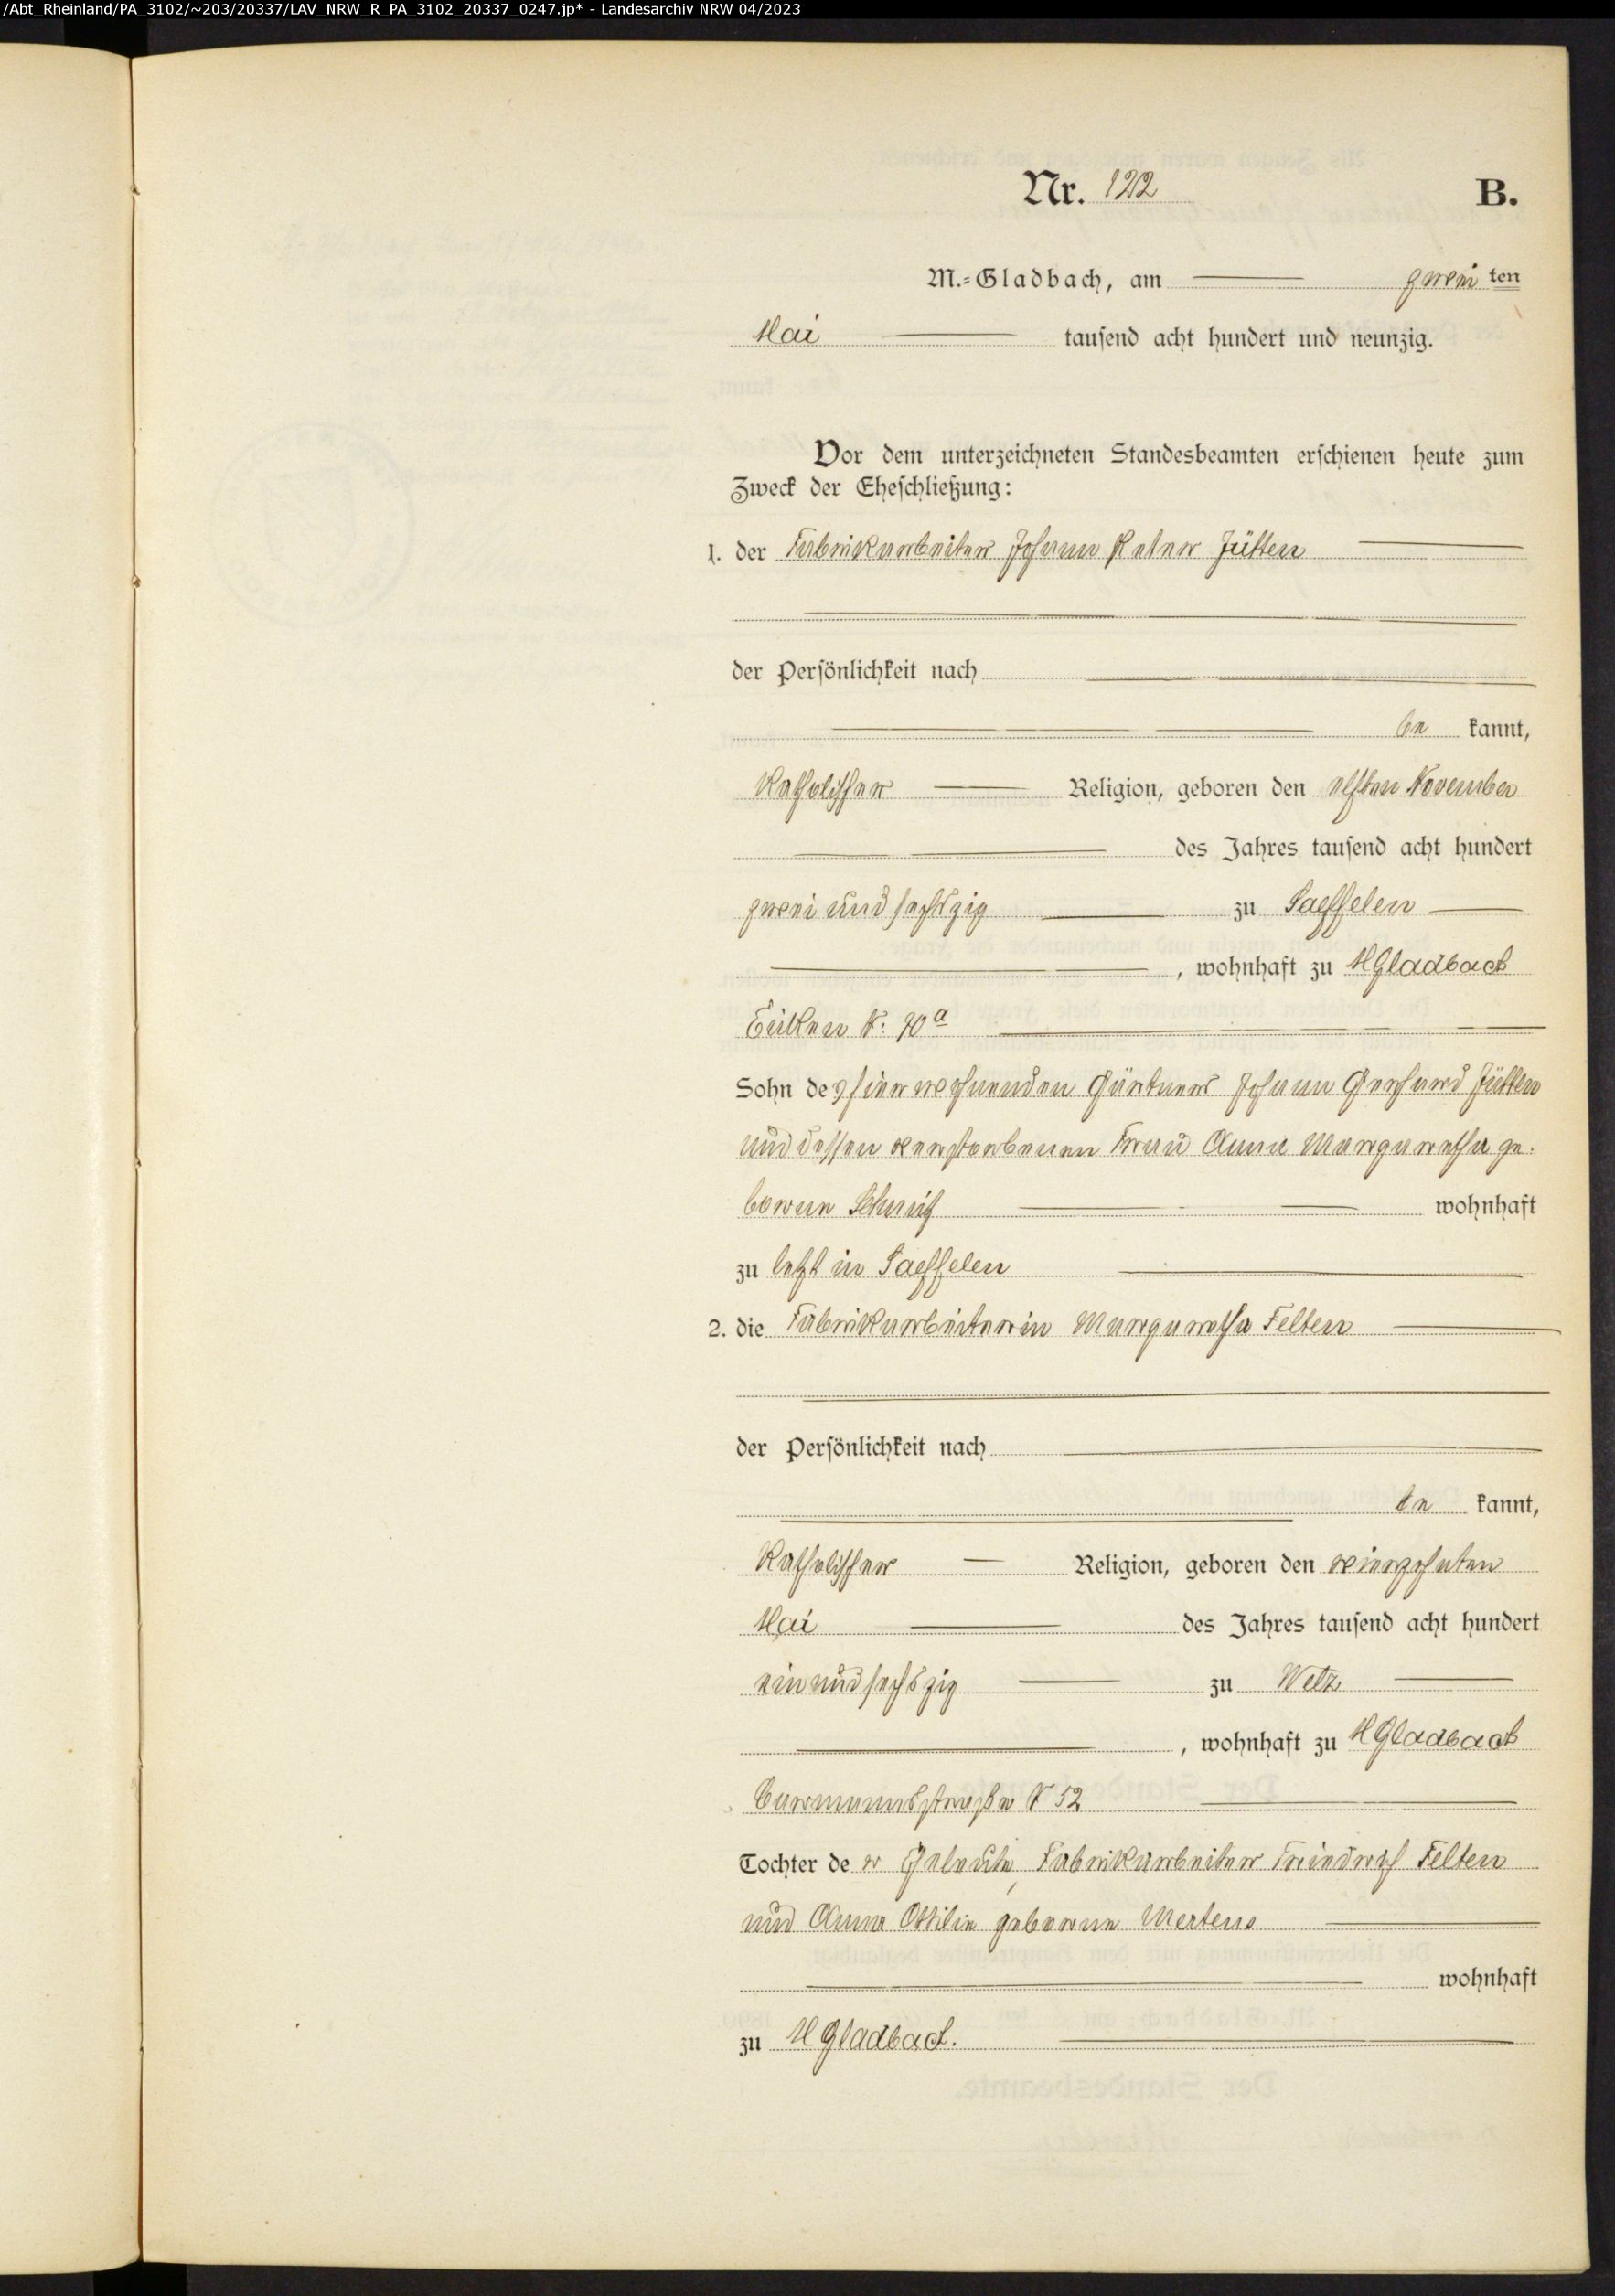 /Abt_Rheinland/PA_3102/~203/20337/LAV_NRW_R_PA_3102_20337_0247.jp* - Landesarchiv NRW 04/2023
Nr. 122
B.
M.=Gladbach, am zwei ten
Mai tausend acht hundert und neunzig.
Vor dem unterzeichneten Standesbeamten erschienen heute zum
Zweck der Eheschließung:
1. der Fabrikarbeiter Johann Peter Jütten
der Persönlichkeit nach
be kannt,
katholischer Religion, geboren den elften November
des Jahres tausend acht hundert
zwei und sechszig zu Saeffelen
, wohnhaft zu MGladbach
Eicken N: 70a
Sohn des hier wohnenden Gärtners Johann Gerhard Jütten
und dessen verstorbenen Frau Anna Margaretha ge-
borene wohnhaft
zu letzt in Saeffelen
2. die Fabrikarbeiterin Margaretha Felten
der Persönlichkeit nach
be kannt,
katholischer Religion, geboren den vierzehnten
Mai des Jahres tausend acht hundert
ein und sechszig zu Welz
, wohnhaft zu MGladbach
N 52
Tochter de r Eheleute, Fabrikarbeiter Friedrich Felten
und Anna Ottilie geborene Mertens
wohnhaft
zu MGladbach.